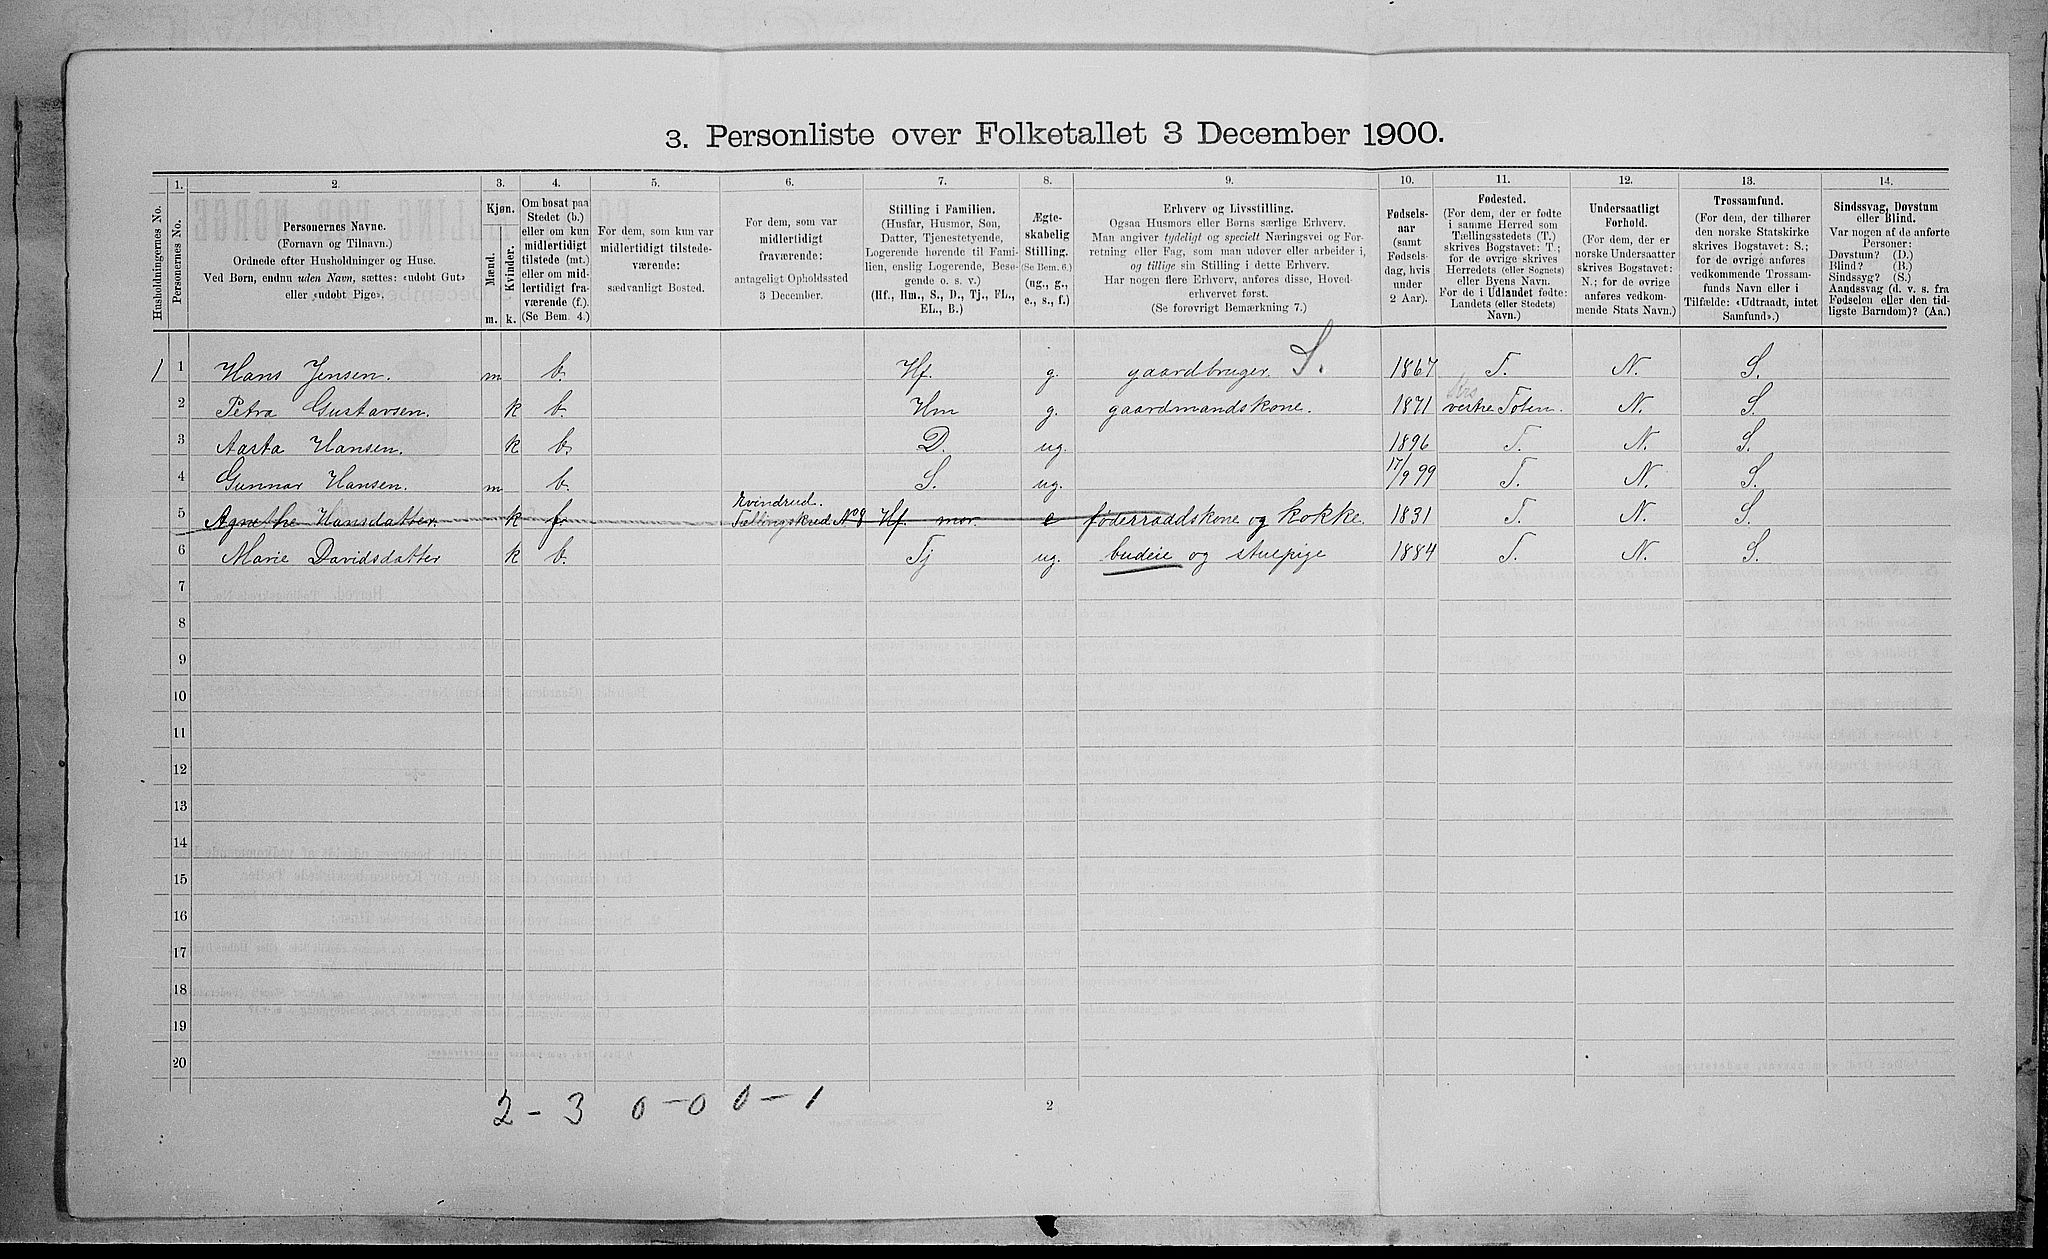 3. Personliste over Folketallet 3 December 1900.
Husholdningernes No.
1.
Personernes No.
2.
Personernes Navne.
(Fornavn og Tilnavn.)
Ordnede efter Husholdninger og Huse.
Ved Børn, endnu uden Navn, sættes: «udøbt Gut»
eller «udøbt Pige».
3.
Kjøn.
Mænd.
Kvinder.
m. k.
4.
Om bosat paa
Stedet (b.)
eller om kun
midlertidigt
tilstede (mt.)
eller om mid-
lertidigt fra-
værende (f.)
(Se Bem. 4.)
5.
For dem, som kun var
midlertidigt tilstede-
værende:
sædvanligt Bosted.
6.
For dem, som var
midlertidigt
fraværende:
antageligt Opholdssted
3 December.
7.
Stilling i Familien.
(Husfar, Husmor, Søn,
Datter, Tjenestetyende,
Logerende hørende til Fami-
lien, enslig Logerende, Besø-
gende o. s. v.)
(Hf., Hm., S., D., Tj., FL.,
EL., B.)
8.
Ægte-
skabelig
Stilling.
(Se Bem. 6.)
(ug., g.,
e., s., f.)
9.
Erhverv og Livsstilling.
Ogsaa Husmors eller Børns særlige Erhverv.
Man angiver tydeligt og specielt Næringsvei og For-
retning eller Fag, som man udøver eller arbeider i,
og tillige sin Stilling i dette Erhverv.
Har nogen flere Erhverv, anføres disse, Hoved-
erhvervet først.
(Se forøvrigt Bemærkning 7.)
10.
Fødsels-
aar
(samt
Fødsels-
dag, hvis
under
2 Aar).
11.
Fødested.
(For dem, der er fødte
i samme Herred som
Tællingsstedets (T.)
skrives Bogstavet: T.;
for de øvrige skrives
Herredets (eller Sognets)
eller Byens Navn.
For de i Udlandet fødte:
Landets (eller Stedets)
Navn.)
12.
Undersaatligt
Forhold.
(For dem, der er
norske Undersaatter
skrives Bogstavet:
N.; for de øvrige
anføres vedkom-
mende Stats Navn.)
13.
Trossamfund.
(For dem, der tilhører
den norske Statskirke
skrives Bogstavet: S.;
for de øvrige anføres
vedkommende Trossam-
funds Navn eller i
Tilfælde: «Udtraadt, intet
Samfund».)
14.
Sindssvag, Døvstum
eller Blind.
Var nogen af de anførte
Personer:
Døvstum? (D.)
Blind? (B.)
Sindssyg? (S.)
Aandssvag (d. v. s. fra
Fødselen eller den tid-
ligste Barndom)? (Aa.)
1 1 Hans Jensen. m b. Hf. g. gaardbruger. S. 1867 T. N. S.
2 Petra Gustavsen. k b. Hm g. gaardmandskone. 1871 vestre Toten. N. S.
3 Aasta Hansen. k b. D. ug. 1896 T. N. S.
4 Gunnar Hansen. m b. S. ug. 17/9 99 T. N. S.
Evindrud.
5 Agnethe Hansdatter. k f. Tællingskred. No 8 Hf. mor. e føderraadskone og kokke. 1831 T. N. S.
6 Marie Davidsdatter k b. Tj ug. budeie og stuepige 1884 T. N. S.
7
8
9
10
11
12
13
14
15
16
17
18
19
20
2 - 3 0 - 0 0 - 1
2